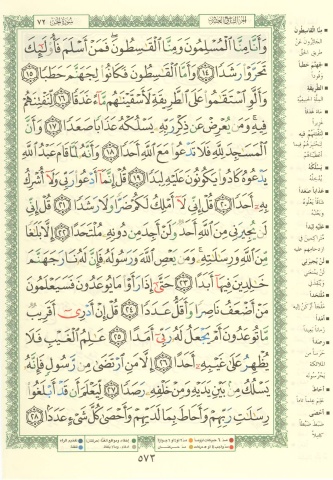 الجزء التاسع والعشرون
سورة الجن ٧٢
وَأَنَّا مِنَّا الْمُسْلِمُونَ وَمِنَّا الْقَاسِطُونَ فَمَنْ أَسْلَمَ فَأُولَٰئِكَ
تَحَرَّوْا رَشَدًا ﴿١٤﴾ وَأَمَّا الْقَاسِطُونَ فَكَانُوا لِجَهَنَّمَ حَطَبًا ﴿١٥﴾
وَأَلَّوِ اسْتَقَامُوا عَلَى الطَّرِيقَةِ لَأَسْقَيْنَاهُم مَّاءً غَدَقًا ﴿١٦﴾ لِّنَفْتِنَهُمْ
فِيهِ وَمَن يُعْرِضْ عَن ذِكْرِ رَبِّهِ يَسْلُكْهُ عَذَابًا صَعَدًا ﴿١٧﴾ وَأَنَّ
الْمَسَاجِدَ لِلَّهِ فَلَا تَدْعُوا مَعَ اللَّهِ أَحَدًا ﴿١٨﴾ وَأَنَّهُ لَمَّا قَامَ عَبْدُ اللَّهِ
يَدْعُوهُ كَادُوا يَكُونُونَ عَلَيْهِ لِبَدًا ﴿١٩﴾ قُلْ إِنَّمَا أَدْعُو رَبِّي وَلَا أُشْرِكُ
بِهِ أَحَدًا ﴿٢٠﴾ قُلْ إِنِّي لَا أَمْلِكُ لَكُمْ ضَرًّا وَلَا رَشَدًا ﴿٢١﴾ قُلْ إِنِّي
لَن يُجِيرَنِي مِنَ اللَّهِ أَحَدٌ وَلَنْ أَجِدَ مِن دُونِهِ مُلْتَحَدًا ﴿٢٢﴾ إِلَّا بَلَاغًا
مِّنَ اللَّهِ وَرِسَالَاتِهِ وَمَن يَعْصِ اللَّهَ وَرَسُولَهُ فَإِنَّ لَهُ نَارَ جَهَنَّمَ
خَالِدِينَ فِيهَا أَبَدًا ﴿٢٣﴾ حَتَّىٰ إِذَا رَأَوْا مَا يُوعَدُونَ فَسَيَعْلَمُونَ
مَنْ أَضْعَفُ نَاصِرًا وَأَقَلُّ عَدَدًا ﴿٢٤﴾ قُلْ إِنْ أَدْرِي أَقَرِيبٌ
مَّا تُوعَدُونَ أَمْ يَجْعَلُ لَهُ رَبِّي أَمَدًا ﴿٢٥﴾ عَالِمُ الْغَيْبِ فَلَا
يُظْهِرُ عَلَىٰ غَيْبِهِ أَحَدًا ﴿٢٦﴾ إِلَّا مَنِ ارْتَضَىٰ مِن رَّسُولٍ فَإِنَّهُ
يَسْلُكُ مِن بَيْنِ يَدَيْهِ وَمِنْ خَلْفِهِ رَصَدًا ﴿٢٧﴾ لِّيَعْلَمَ أَن قَدْ أَبْلَغُوا
رِسَالَاتِ رَبِّهِمْ وَأَحَاطَ بِمَا لَدَيْهِمْ وَأَحْصَىٰ كُلَّ شَيْءٍ عَدَدًا ﴿٢٨﴾
٥٧٣
منّا القاسطون
لجهنم حطبا
الطريقة
ماء غدقا
لنفتنهم فيه
يسلكه
عذابا صعدا
عليه لبدا
لن يجيرني
ملتحدا
أمدا
رصدا
أحاط
أحصى